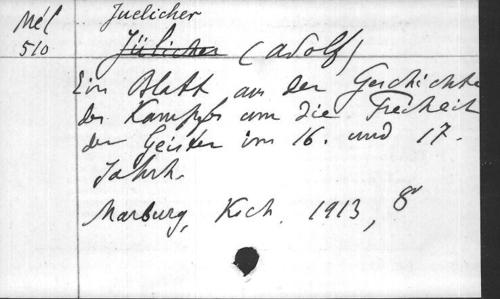 Mél Juelicher
510 Jülicher (Adolf)
Ein Blatt aus der Geschichte
des Kampfes um die Freiheit
der Geister im 16. und 17.
Jahrh.
Marburg, Koch. 1913, 8°